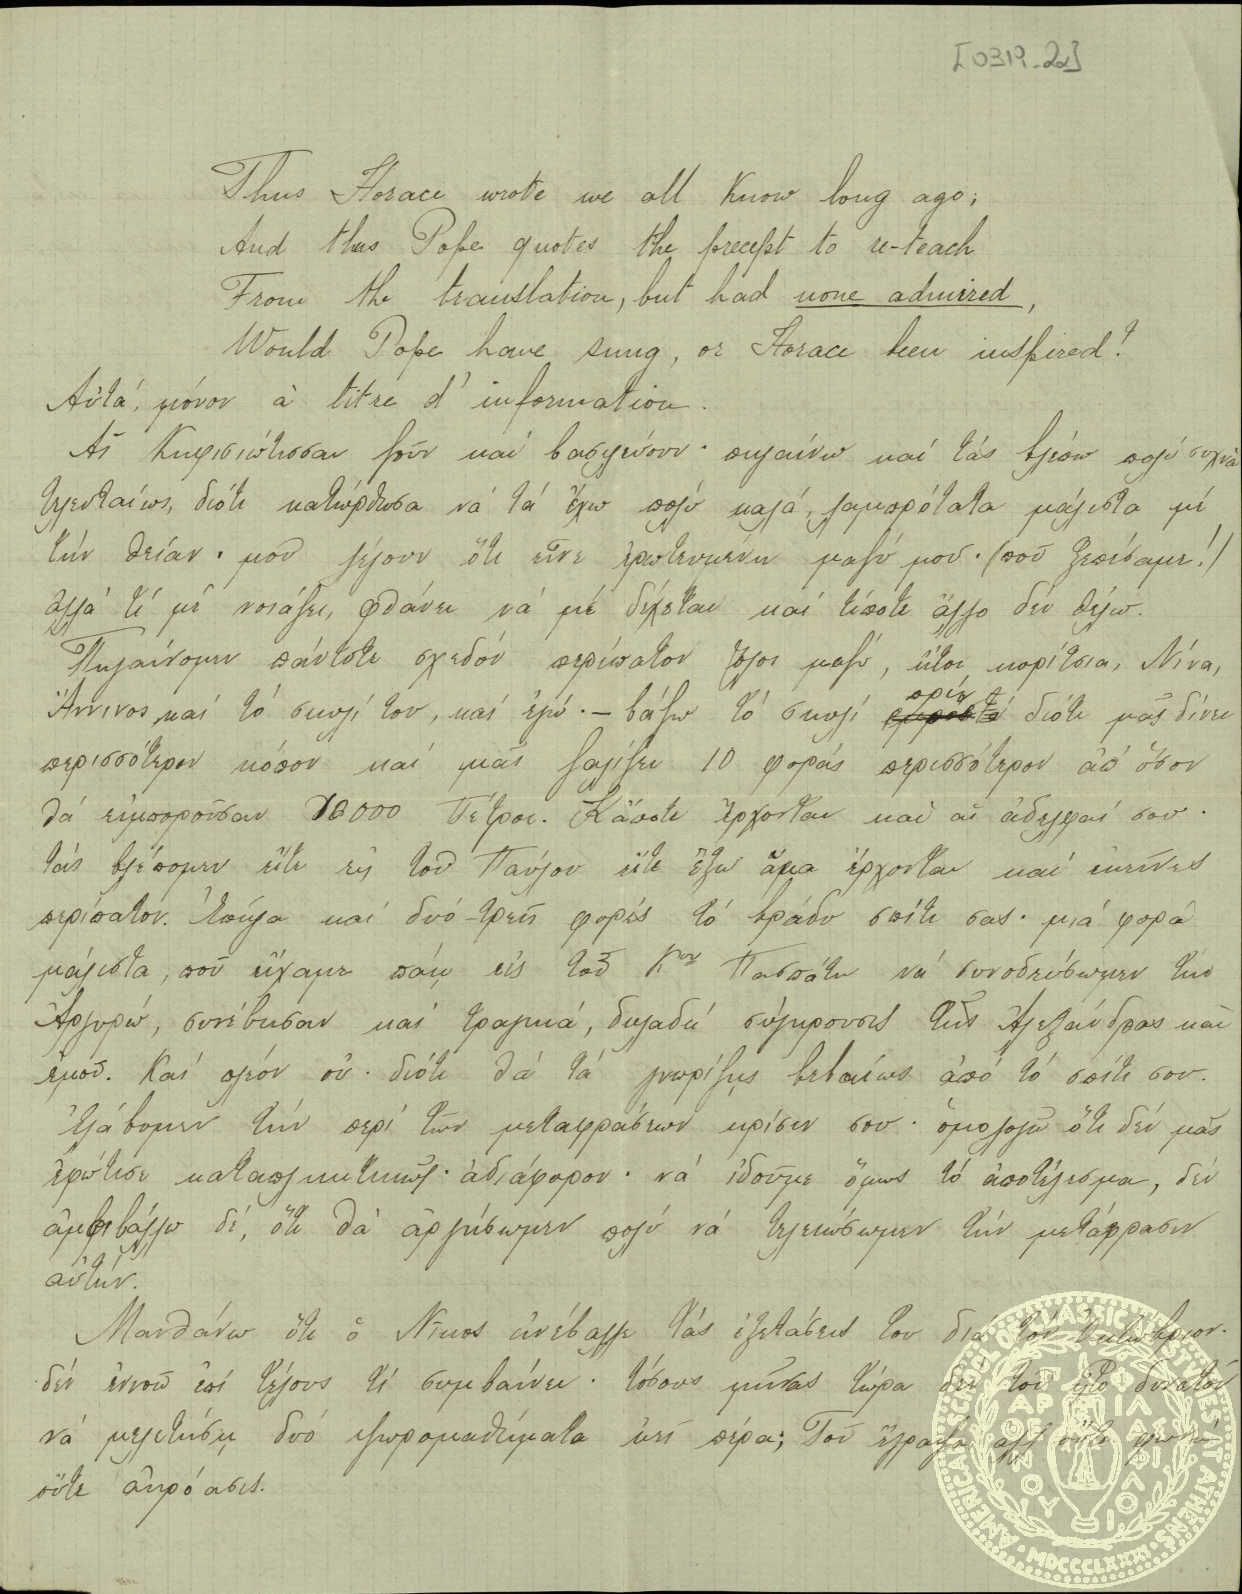 [0319_2α]
Thus Horace wrote we all know long ago;
And thus Pope quotes the precept to re-teach
From the translation, but had none admired,
Would Pope have sung, or Horace been inspired?
Αὐτά, μόνον à titre d'information.
Αἱ Κηφισιώτισσαι ζοῦν καί βασιλεύουν· πηγαίνω καί τάς βλέπω πολύ συχνά
τελευταίως, διότι κατώρθωσα νά τά ἔχω πολύ καλά, λαμπρότατα μάλιστα μέ
τήν θείαν· μοῦ λέγουν ὅτι εἶνε ἐρωτευμένη μαζύ μου· (ποῦ ξεπέσαμε!)
ἀλλά τί μέ νοιάζει, φθάνει νά μέ δέχεται καί τίποτε ἄλλο δέν θέλω.
Πηγαίνομεν πάντοτε σχεδόν περίπατον ὅλοι μαζύ, ἤτοι κορίτσια, Νίνα,
Ἄννινος καί τό σκυλί του, καί ἐγώ.— βάζω τό σκυλί πρίν διότι μᾶς δίνει
περισσότερον κόπον καί μᾶς ζαλίζει 10 φοράς περισσότερον ἀπ' ὅσον
θά εἰμποροῦσαν 10000 Πέτροι. Κάποτε ἔρχονται καί αἱ ἀδελφαί σου·
τάς βλέπομεν εἴτε εἰς τοῦ Παύλου εἴτε ἔξω ἅμα ἔρχονται καί ἐκεῖνες
περίπατον. Ἐπῆγα καί δυό-τρεῖς φορές τό βράδυ σπίτι σας· μιά φορά
μάλιστα, ποῦ εἴχαμε πάῃ εἰς τοῦ Κου Πασπάτη νά συνοδεύσωμεν τήν
Ἀργυρώ, συνέβησαν καί τραγικά, δηλαδή σύγκρουσις τῆς Ἀλεξάνδρας καί
ἐμοῦ. Καί πλέον οὐ· διότι θά τά γνωρίζῃς βεβαίως ἀπό τό σπίτι σου.
Ἐλάβομεν τήν περί τῶν μεταφράσεων κρίσιν σου· ὁμολογῶ ὅτι δέν μᾶς
ἐφώτισε καταπληκτικῶς· ἀδιάφορον· νά ἰδοῦμε ὅμως τό ἀποτέλεσμα, δέν
ἀμφιβάλλω δέ, ὅτι θά ἀργήσωμεν πολύ νά τελειώσωμεν τήν μετάφρασιν
αὐτήν.
Μανθάνω ὅτι ὁ Νῖκος ἀνέβαλλε τάς ἐξετάσεις του διά τόν Ὀκτώβριον·
δέν ἐννοῶ ἐπί τέλους τί συμβαίνει· τόσους μῆνας τώρα δέν τοῦ ἦτο δυνατόν
νά μελετήσῃ δυό ψωρομαθήματα ἐκεῖ πέρα; Τοῦ ἔγραψα ἀλλ' οὔτε φωνή
οὔτε ἀκρόασις.
AMERICAN SCHOOL OF CLASSICAL STUDIES AT ATHENS
MDCCCLXXXI